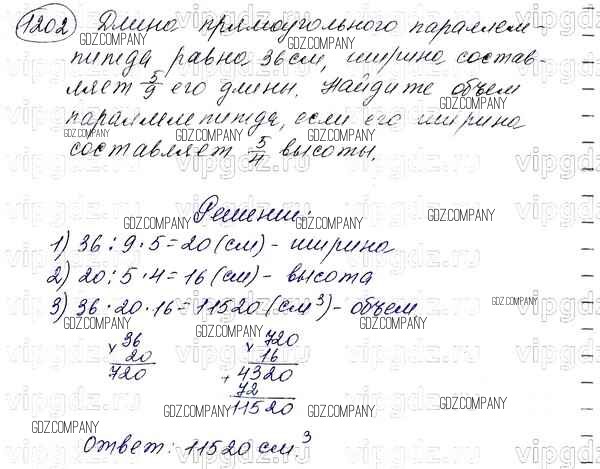 1202) Длина прямоугольного параллеле-
пипеда равна 36 см, ширина состав-
ляет 5/9 его длины. Найдите объем
параллелепипеда, если его ширина
составляет 5/4 высоты.
Решение:
1) 36 : 9 · 5 = 20 (см) - ширина
2) 20 : 5 · 4 = 16 (см) - высота
3) 36 · 20 · 16 = 11520 (см³) - объем
36 720
× 20 × 16
720 + 4320
72
11520
Ответ: 11520 см.³
GDZ.COMPANY
vipgdz.ru